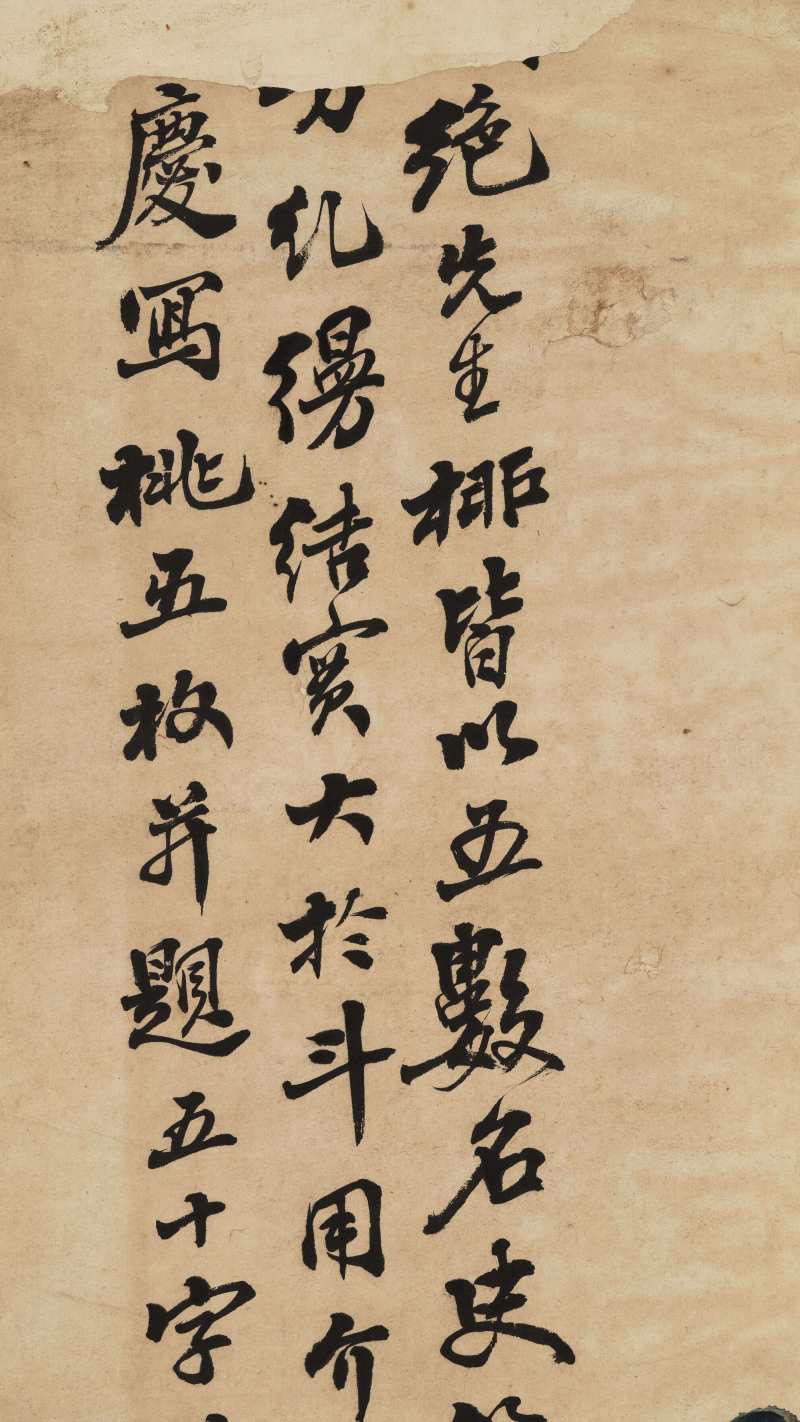 絶先生柳皆以五數名史
糺縵結實大於斗用介
慶寫桃五枚并題五十字